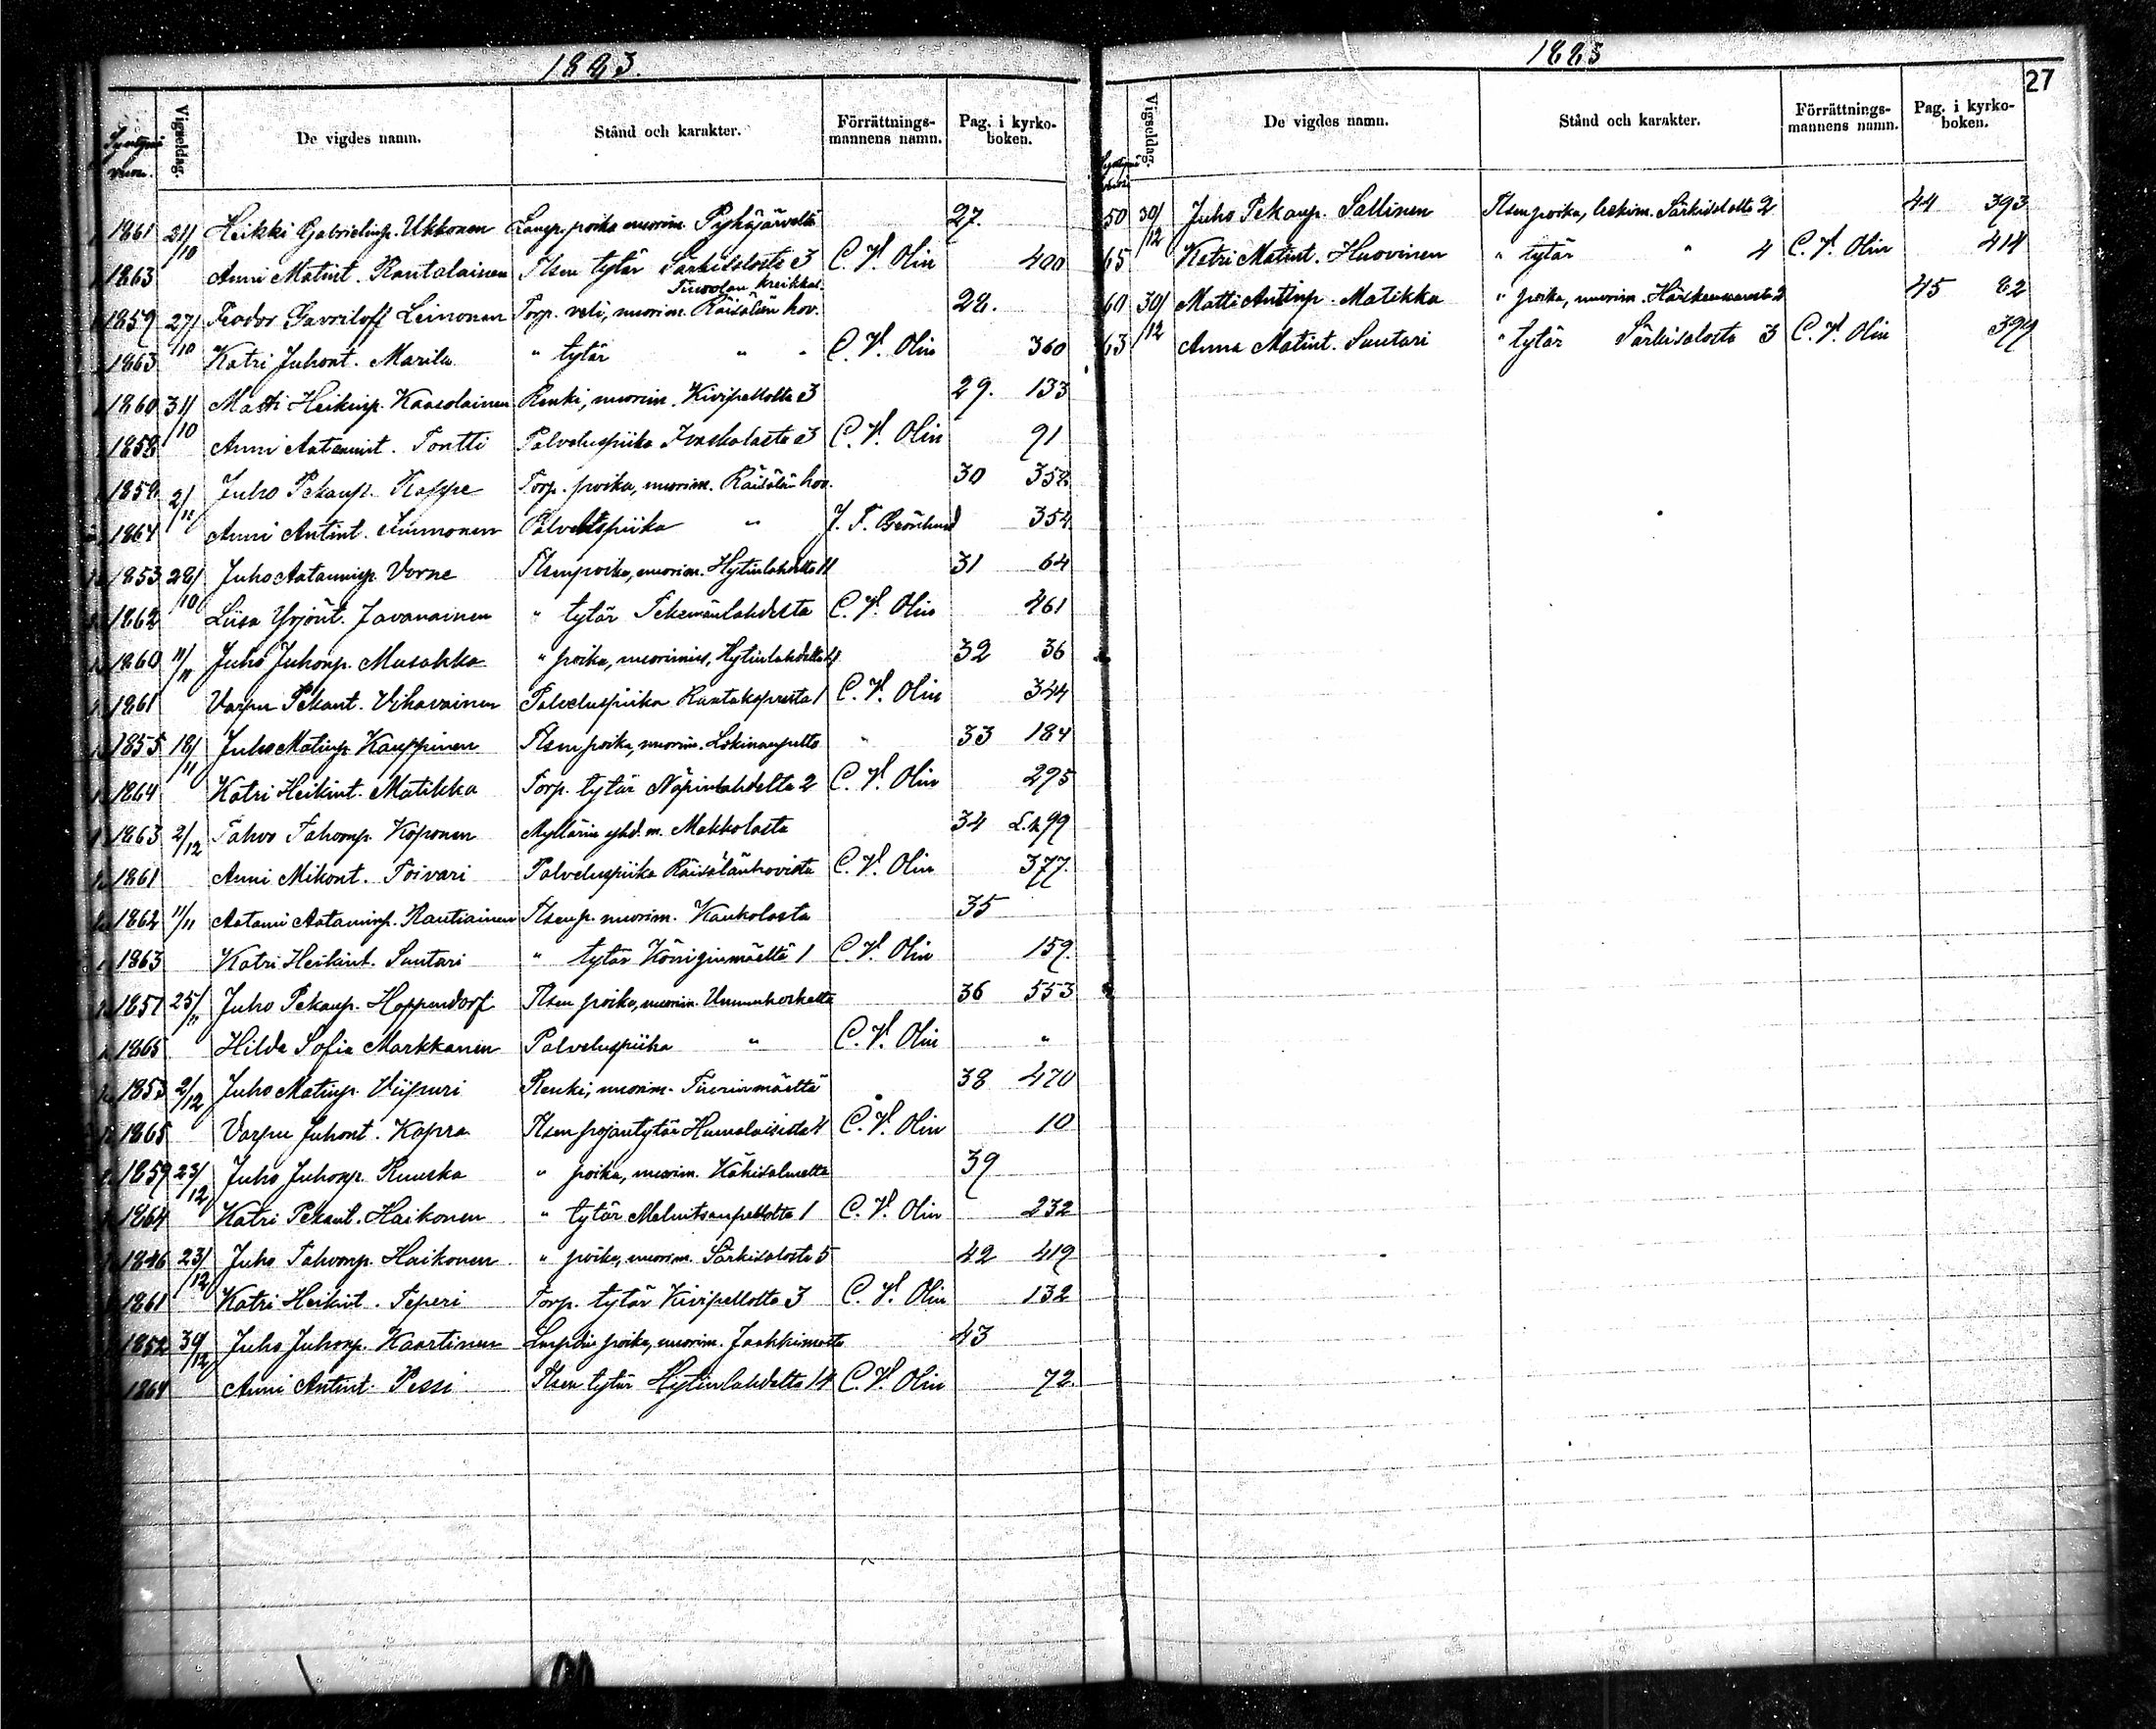 1883.
Syntymä vuosi. Vigseldag. De vigdes namn. Stånd och karakter. Förrättningsmannens namn. Pag. i kyrkoboken.
1861 21/10 Heikki Gabrielinp. Ukkonen Lamp. poika nuorim. Pyhäjärveltä 27.
1863 Anni Matint. Rantalainen Tlsen tytär Särkisalosta 3 C. V. Olin 400
kreikkal.
1859 27/10 Feodor Gavriloff Leinonen Torp. veli, nuorim. Räisälän hov. 28.
1863 Katri Juhont. Marila " tytär " " C. V. Olin 360
1860 31/10 Matti Heikinp. Kaasolainen Renki, nuorim. Kivipellolta 3 29. 133
1858 Anni Aatamint. Tontti Palveluspiika Ivaskalasta 3 C. V. Olin 91
1858 2/11 Juho Pekanp. Kappe Torp. poika, nuorim. Räisälän hov. 30 358
1864 Anni Antint. Immonen Palveluspiika " J. F. Grönlund 354
1853 28/10 Juho Aataminp. Vorne Tlsen poika, nuorim. Hytinlahdelta 11 31 64
1862 Liisa Yrjönt. Javanainen " tytär Tekemänlahdesta C. V. Olin 461
1860 11/11 Juho Juhonp. Musakka " poika, nuorimies, Hytinlahdelta 4 32 36
1861 Varpu Pekant. Vihavainen Palveluspiika Rantakylästä 1 C. V. Olin 344
1855 18/11 Juho Matinp. Kauppinen Tlsen poika, nuorim. " 33 184
1864 Katri Heikint. Matikka Torp. tytär Näpinlahdelta 2 C. V. Olin 295
1863 2/12 Tahvo Tahvonp. Koponen Myllärin yhd. m. Makkolasta 34 L.k 99
1861 Anni Mikont. Toivari Palveluspiika Räisälänhovista C. V. Olin 377.
1862 11/11 Aatami Aataminp. Rautiainen Tlsen p. nuorim. Kaukolasta 35
1863 Katri Heikint. Suutari " tytär Königinmäeltä 1 C. V. Olin 159.
1857 25/11 Juho Pekanp. Hoppendorf Tlsen poika, nuorim. Unnunkoskelta 36 553
1865 Hilda Sofia Markkanen Palveluspiika " C. V. Olin "
1853 2/12 Juho Matinp. Viipuri Renki, nuorim. Tiurinmäeltä 38 470
1865 Varpu Juhont. Kopra Tlsen pojantytär Humalaisista 4 C. V. Olin 10
1859 23/12 Juho Juhonp. Ruuska " poika, nuorim. Käkisalmelta 39
1864 Katri Pekant. Haikonen " tytär Melnitsanpellolta 1 C. V. Olin 232
1846 23/12 Juho Tahvonp. Haikonen " poika, nuorim. Särkisalosta 5 42 419
1861 Katri Heikint. Teperi Torp. tytär Kivipellolta 3 C. V. Olin 132
1852 30/12 Juho Juhonp. Kaartinen poika, nuorim. Jaakkimasta 43
1864 Anni Antint. Pessi Tlsen tytär Hytinlahdelta 14 C. V. Olin 72.
1883
27
Syntymä vuosi Vigseldag. De vigdes namn. Stånd och karakter. Förrättningsmannens namn. Pag. i kyrkoboken.
50 30/12 Juho Pekanp. Sallinen Tlsen poika, leskim. Särkisalosta 2 44 393
65 Katri Matint. Huovinen " tytär " 4 C. V. Olin 414
60 30/12 Matti Antinp. Matikka " poika, nuorim. 2 45 82
63 Anna Matint. Suutari " tytär Särkisalosta 3 C. V. Olin 399